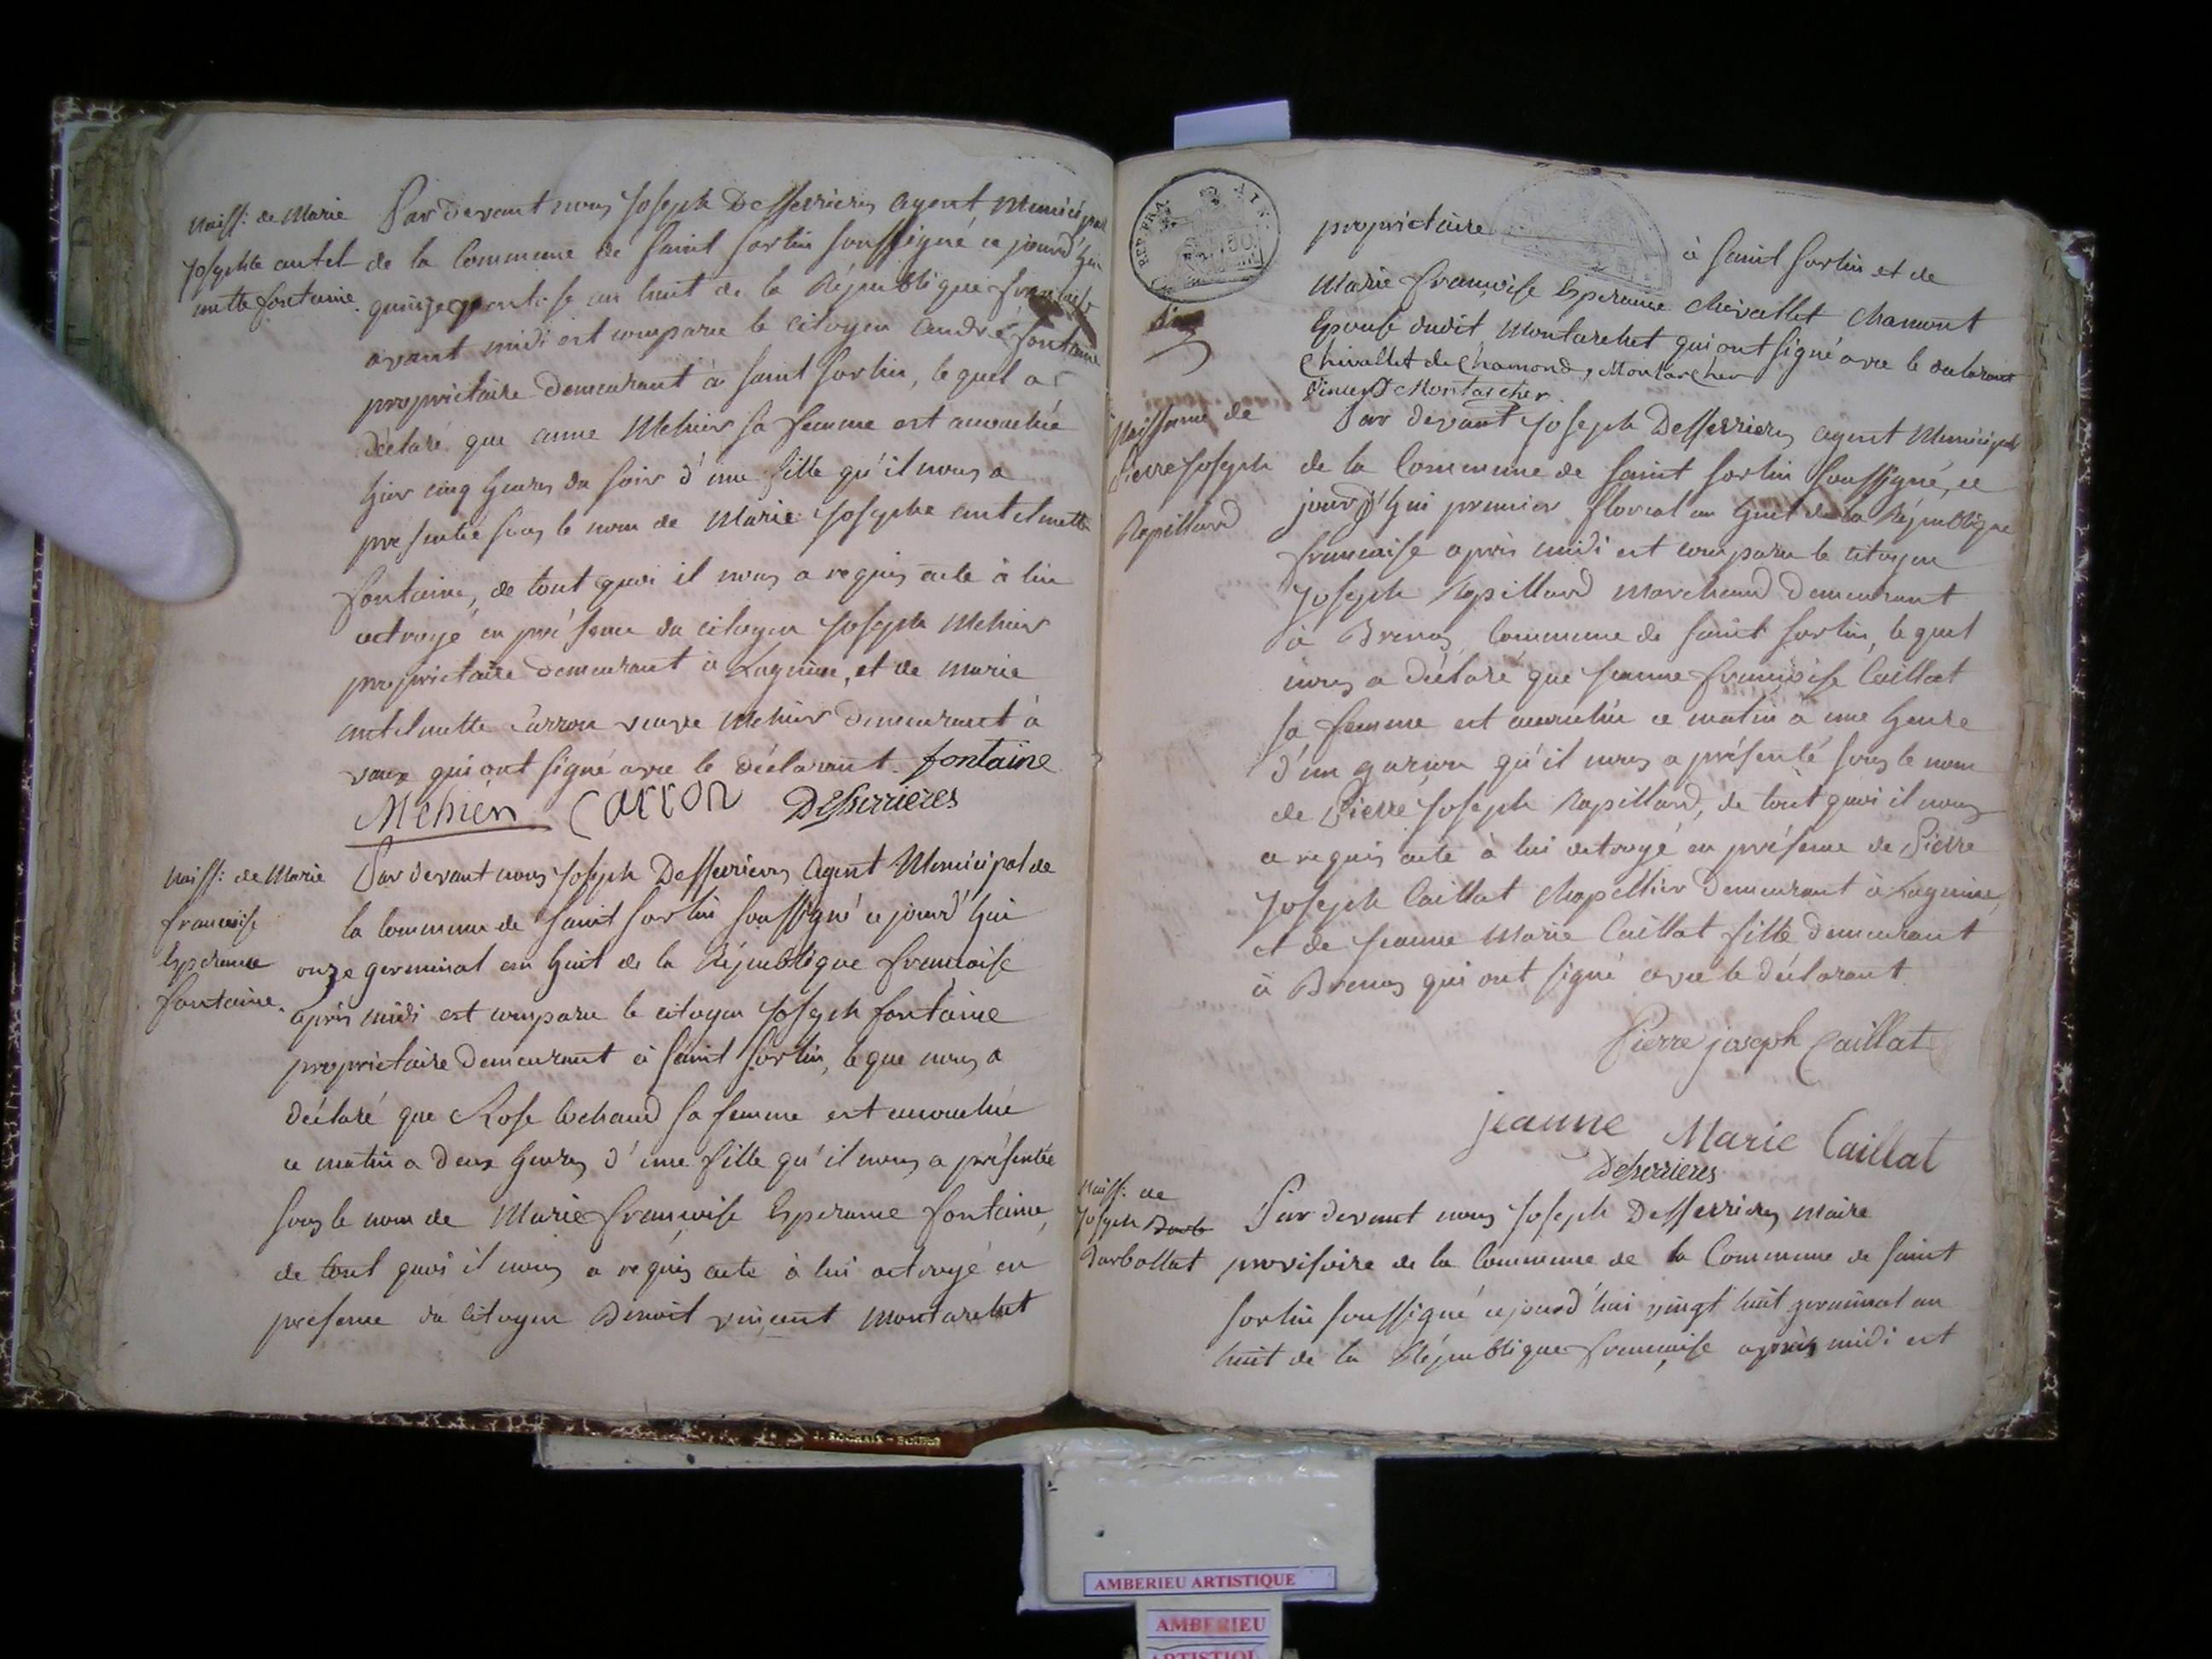 Naiss: de Marie
Josephte antel-
mette fontaine.
Par devant nous Joseph Desserrieres agent Municipal
de la Commune de Saint Sorlin soussigné ce jourd'hui
quinze ventose an huit de la République française
avant midi est comparu le citoyen andré fontaine
propriétaire demeurant à Saint Sorlin, le quel a
déclaré que anne Mehier sa femme est accouchée
hier cinq heures du soir d'une fille qu'il nous a
présentée sous le nom de Marie Josephe antelmette
fontaine, de tout quoi il nous a requis acte à lui
octroyé en présence du citoyen Joseph Mehier
propriétaire demeurant à Lagnieu, et de marie
antelmette Carron veuve Mehier demeurant à
vaux qui ont signé avec le déclarant. fontaine
Mehier Carron Desserrieres
Naiss: de Marie
françoise
Esperance
fontaine.
Par devant nous Joseph Desserrieres Agent Municipal de
la Commune de Saint Sorlin soussigné ce jourd'hui
onze germinal an huit de la République française
après midi est comparu le citoyen Joseph fontaine
propriétaire demeurant à Saint Sorlin, le que nous a
déclaré que Rose Cochaud sa femme est accouchée
ce matin a deux heures d'une fille qu'il nous a présentée
sous le nom de Marie françoise Esperance fontaine,
de tout quoi il nous a requis acte à lui octroyé en
présence du citoyen Benoit vincent Montarchet
REP. FRA.
50
propriétaire
à Saint Sorlin et de
Marie françoise Esperance Chevallet Chamont
Epouse dudit Montarchet qui ont signé avec le déclarant
Chivallet de Chamond, Montarcher
Vincent Montarcher.
Naissance de
Pierre Joseph
Repillard
Par devant Joseph Desserrieres agent Municipal
de la Commune de Saint Sorlin Soussigné, ce
jourd'hui premier floreal an huit de la République
française après midi est comparu le citoyen
Joseph Repillard marchand demeurant
à Brenas Commune de Saint Sorlin, le quel
nous a déclaré que Jeanne françoise Caillat
sa femme est accouchée ce matin a une heure
d'un garçon qu'il nous a présenté sous le nom
de Pierre Joseph Repillard, de tout quoi il nous
a requis acte à lui octroyé en présence de Pierre
Joseph Caillat Chapellier demeurant à Lagnieu,
et de Jeanne Marie Caillat fille demeurant
à Brenas qui ont signé avec le déclarant.
Pierre joseph Caillat
jeanne Marie Caillat
Desserrieres
Naiss: de
Joseph Barb
Barbollat
Par devant nous Joseph Desserrieres maire
provisoire de la Commune de la Commune de Saint
Sorlin soussigné ce jourd'hui vingt huit germinal an
huit de la République française après midi est
J. ROCHAIX - BOURG
AMBERIEU ARTISTIQUE
AMBERIEU
ARTISTIQUE